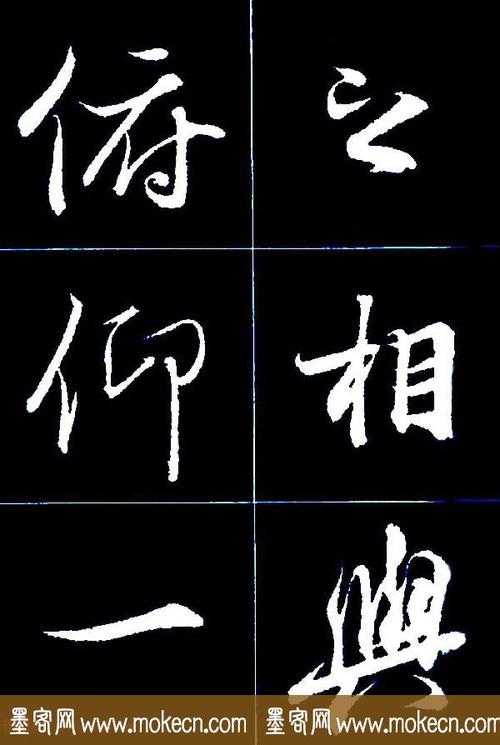 之相與
俯仰一
墨客网 www.mokecn.com 墨客网 www.mokecn.com